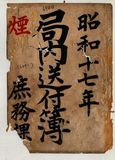 昭和十七年
局内送付簿
煙
庶務課